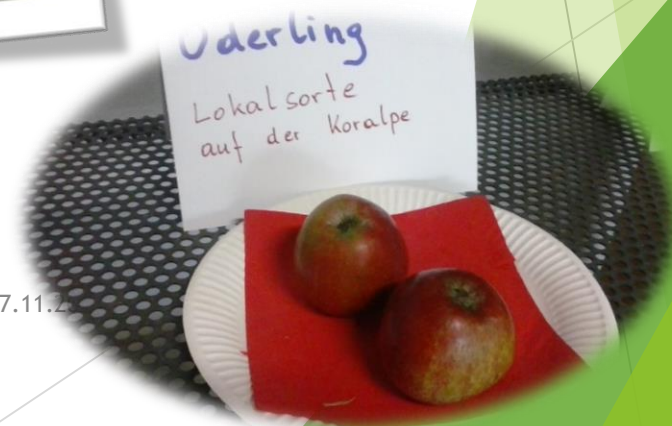 Uderling
Lokalsorte
auf der Koralpe
7.11.2